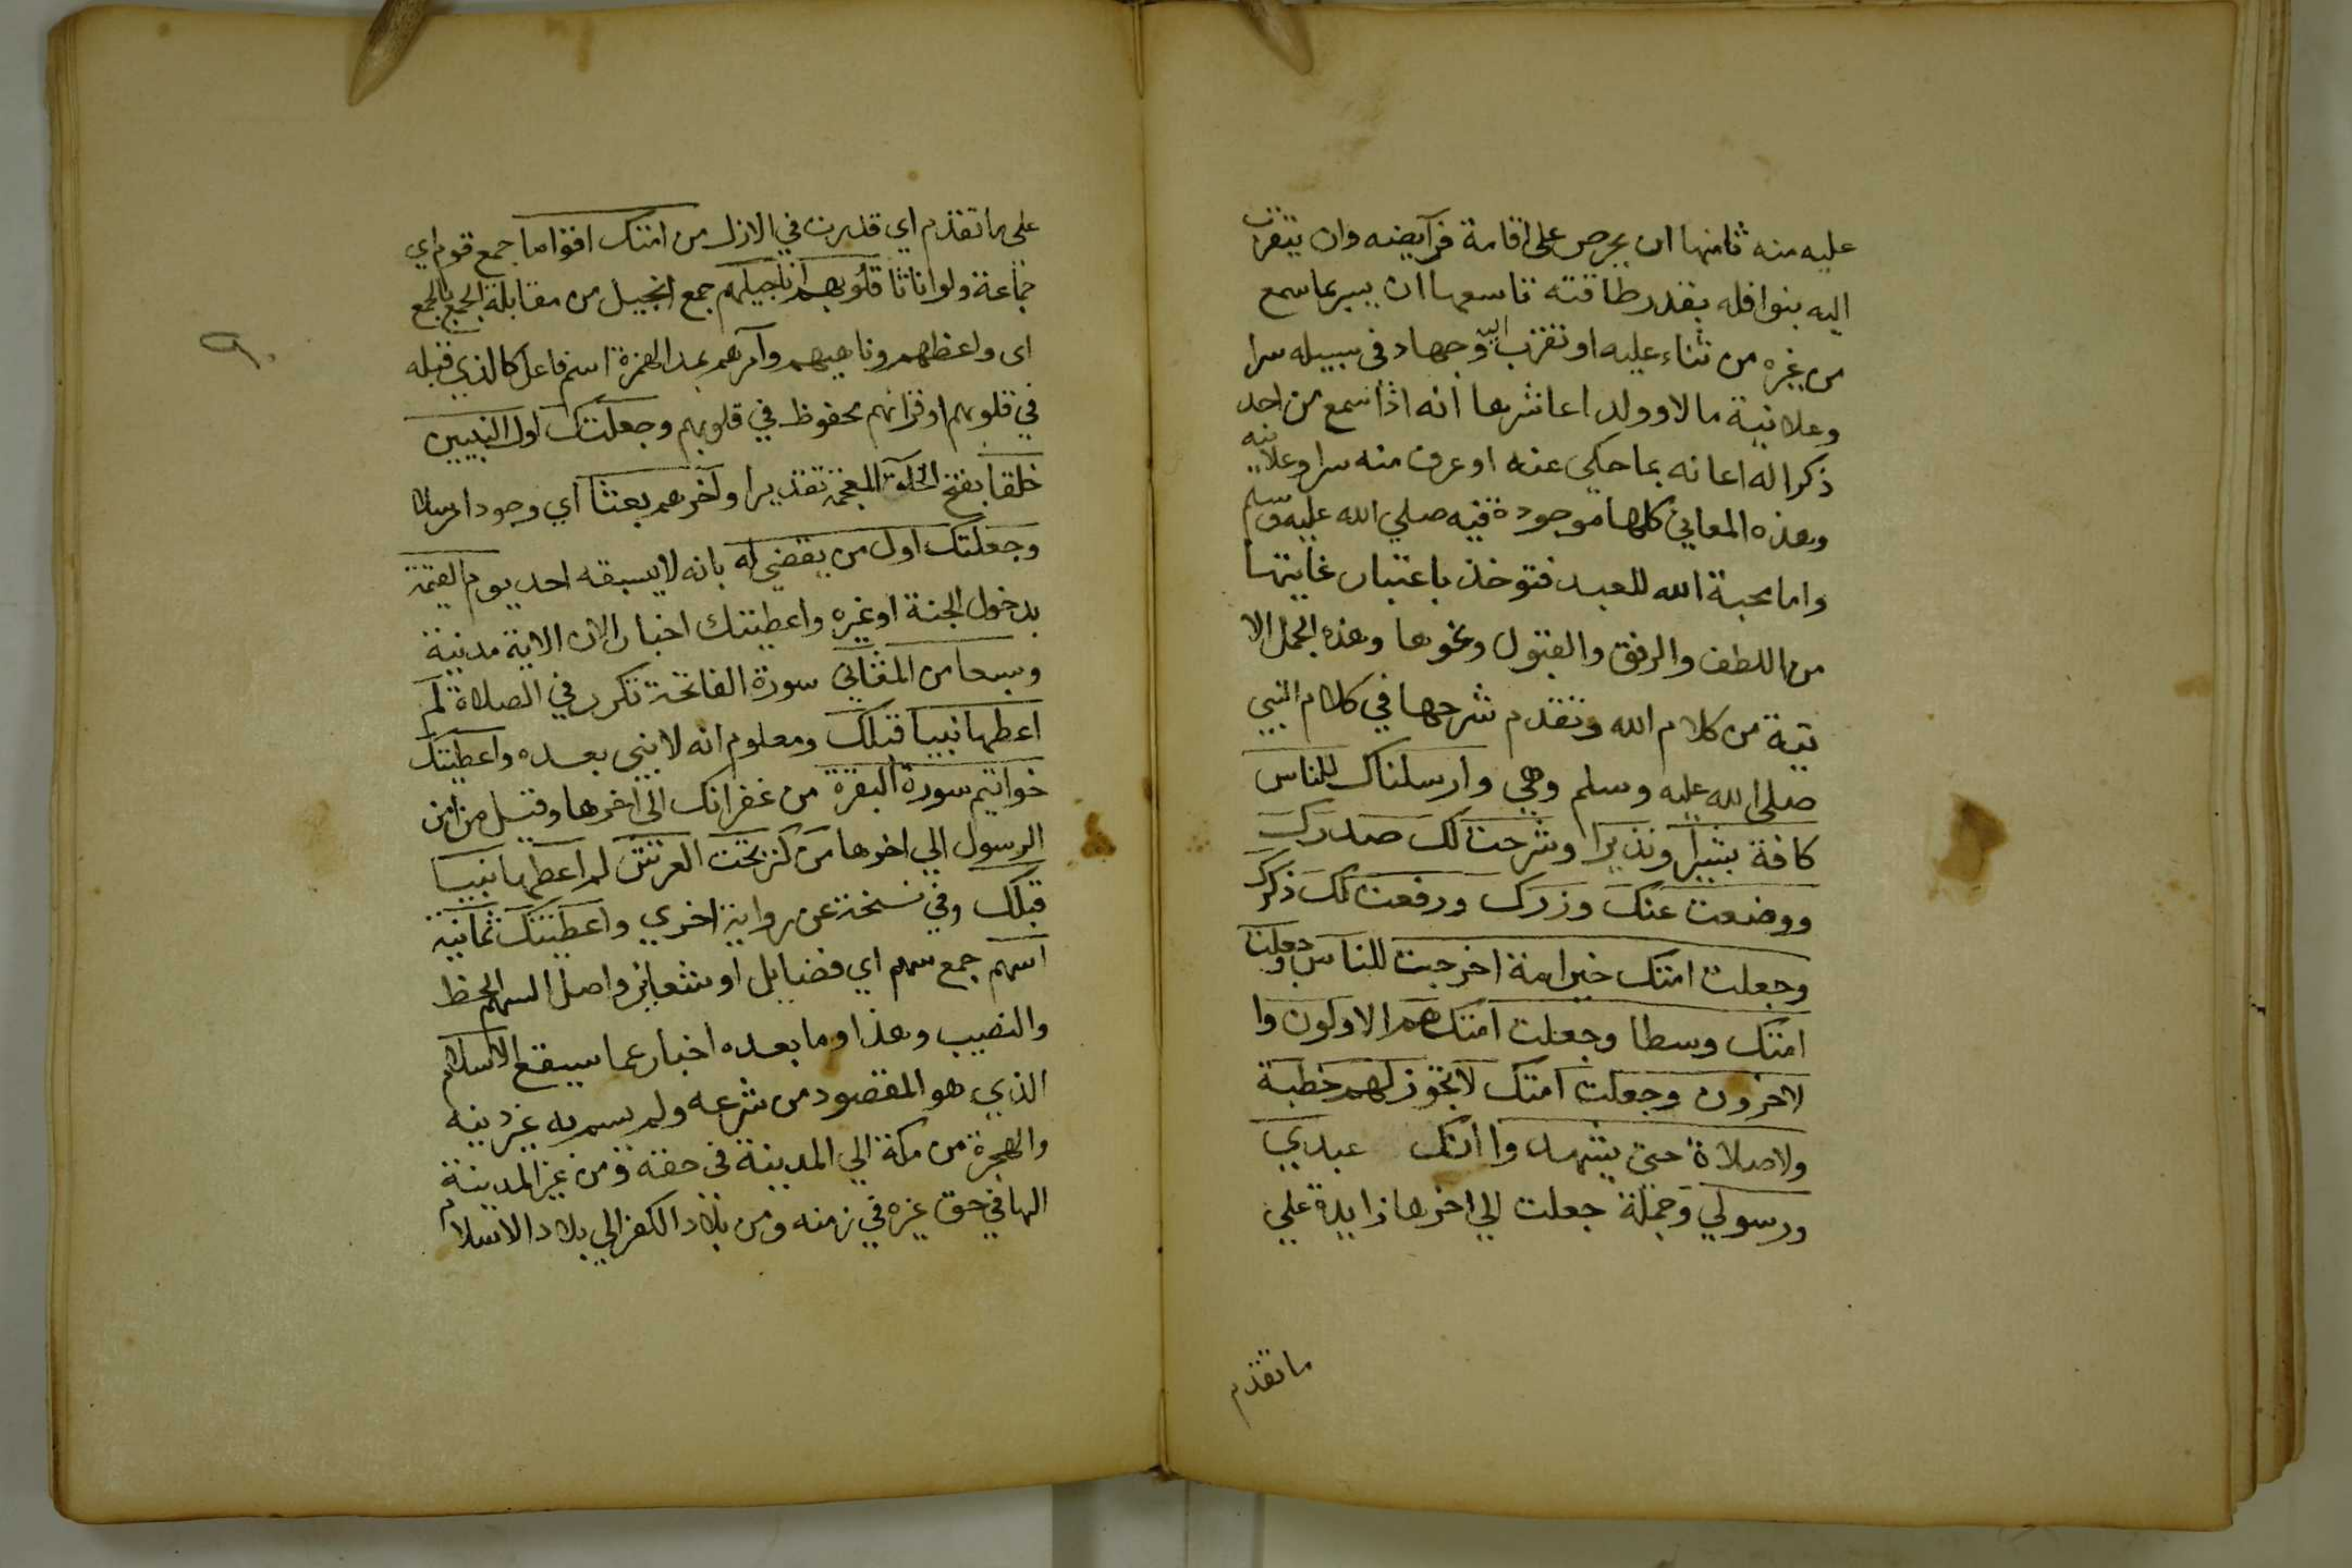 عليه منه ثامنها ان يحرص على اقامة فرآيضه وان يتقرب
اليه بنوافله بقدر طاقته تاسعها ان يسر بما سمع
من غيره من ثناء عليه او تقرب اليه وجهاد في سبيله سرا
وعلانية مالا وولدا عاشرها انه اذا سمع من احد
ذكرا له اعانه بما حكى عنه او عرف منه سرا وعلانيه
وهذه المعاني كلها موجودة فيه صلي الله عليه وسلم
واما محبة الله للعبد فتوخذ باعتبار غايتها
من اللطف والرفق والقبول ونحوها وهذه الجمل الا
تية من كلام الله وتقدم شرحها في كلام النبي
صلى الله عليه وسلم وهي وارسلناك للناس
كافة بشيرا ونذيرا وشرحت لك صدرك
ووضعت عنك وزرك ورفعت لك ذكرك
وجعلت امتك خير امة اخرجت للناس وجعلت
امتك وسطا وجعلت امتك هم الاولون وا
لاخرون وجعلت امتك لا تجوز لهم خطبة
ولا صلاة حتى يشهدوا انك عبدي
ورسولي وجملة جعلت الي اخرها زايدة علي
ما تقدم
على ما تقدم اي قدرت في الازل من امتك اقواما جمع قوم اي
جماعة ولو اناثا قلوبهم اناجيلهم جمع انجيل من مقابلة الجمع بالجمع
اى واعظهم وناهيهم وآمرهم بمد الهمزة اسم فاعل كالذي قبله
في قلوبهم او قرانهم محفوظ في قلوبهم وجعلتك اول النبيين
خلقا بفتح الخآء المعجمة تقديرا واخرهم بعثا اي وجودا وارسالا
وجعلتك اول من يقضي له بانه لا يسبقه احد يوم القيمة
بدخول الجنة او غيره واعطيتك اخبار الان الاية مدنية
وسبعا من المثاني سورة الفاتحة تكرر في الصلاة لم
اعطها نبيا قبلك ومعلوم انه لا نبي بعده واعطيتك
خواتيم سورة البقرة من غفرانك الى اخرها وقيل من امن
الرسول الي اخرها من كنز تحت العرش لم اعطها نبيا
قبلك وفي نسخة عن رواية اخري واعطيتك ثمانية
اسهم جمع سهم اي فضايل او شعاير واصل السهم الحظ
والنصيب وهذا وما بعده اخبار عما سيقع الاسلام
الذي هو المقصود من شرعه ولم يسم به غير دينه
والهجرة من مكة الي المدينة في حقه ومن غير المدينة
اليها في حق غيره في زمنه ومن بلاد الكفر الي بلاد الاسلام